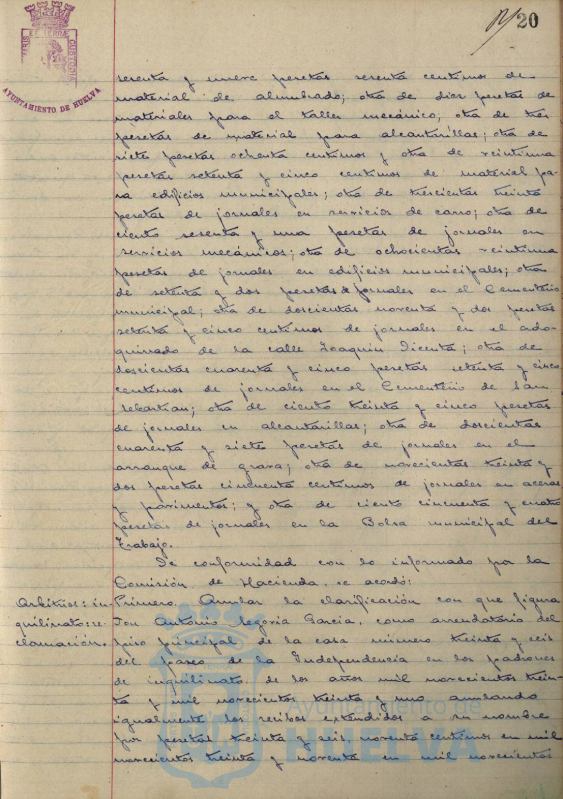 20
AYUNTAMIENTO DE HUELVA
sesenta y nueve pesetas sesenta centimos de
material de alumbrado; otra de diez pesetas de
materiales para el taller mecánico; otra de tres
pesetas de material para alcantarillas; otra de
siete pesetas ochenta centimos y otra de veintiuna
pesetas setenta y cinco centimos de material pa-
ra edificios municipales; otra de trescientas treinta
pesetas de jornales en servicios de carro; otra de
ciento sesenta y una pesetas de jornales en
servicios mecánicos; otra de ochocientas veintiuna
pesetas de jornales en edificios municipales; otra
de setenta y dos pesetas de jornales en el Cementerio
municipal; otra de doscientas noventa y dos pesetas
setenta y cinco centimos de jornales en el ado-
quinado de la calle Joaquin Dicenta; otra de
doscientas cuarenta y cinco pesetas setenta y cinco
centimos de jornales en el Cementerio de San
Sebastian; otra de ciento treinta y cinco pesetas
de jornales en alcantarillas; otra de doscientas
cuarenta y siete pesetas de jornales en el
arranque de grava; otra de novecientas treinta y
dos pesetas cincuenta centimos de jornales en aceras
y pavimentos; y otra de ciento cincuenta y cuatro
pesetas de jornales en la Bolsa municipal del
Trabajo.
De conformidad con lo informado por la
Comisión de Hacienda, se acordó:
Arbitrios: in-
quilinato: re-
clamación.
Primero. Anular la clasificación con que figura
Don Antonio Segovia Garcia, como arrendatario del
piso principal de la casa número treinta y seis
del paseo de la Independencia en los padrones
de inquilinato de los años mil novecientos trein-
ta y mil novecientos treinta y uno, anulando
igualmente los recibos extendidos a su nombre
por pesetas treinta y seis, noventa centimos en mil
novecientos treinta y noventa en mil novecientos
Ayuntamiento de
HUELVA